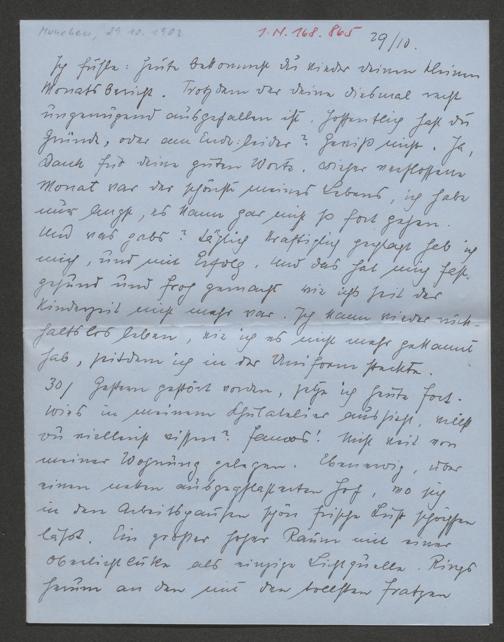 München, 29.10.1902
I.N. 168.865
29/10.
Ich fühle: heute bekommst du wieder deinen kleinen
Monatsbericht. Trotzdem der deine diesmal recht
ungenügend ausgefallen ist. Hoffentlich hast du
Gründe, oder am Ende leider? Gewiß nicht. Ja,
Dank für deine guten Worte. Dieser verflossene
Monat war der schönste meines Lebens, ich habe
nur Angst, es kann gar nicht so fort gehen.
Und was gabs? Täglich kräftiglich geplagt hab ich
mich, und mit Erfolg. Und das hat mich fest
gesund und froh gemacht wie ichs seit der
Kinderzeit nicht mehr war. Ich kann wieder rück-
haltslos leben, wie ich es nicht mehr gekannt
hab, seitdem ich in der Uniform steckte.
30/ Gestern gestört worden, setze ich heute fort.
Wies in meinem Schulatelier aussieht, willst
du vielleicht wissen? Famos! Nicht weit von
meiner Wohnung gelegen. Ebenerdig, über
einen netten ausgepflasterten Hof, wo sich
in den Arbeitspausen schön frische Luft schöpfen
läßt. Ein großer hoher Raum mit einer
Oberlichtluke als einzige Lichtquelle. Rings
herum an den mit den tollsten Fratzen